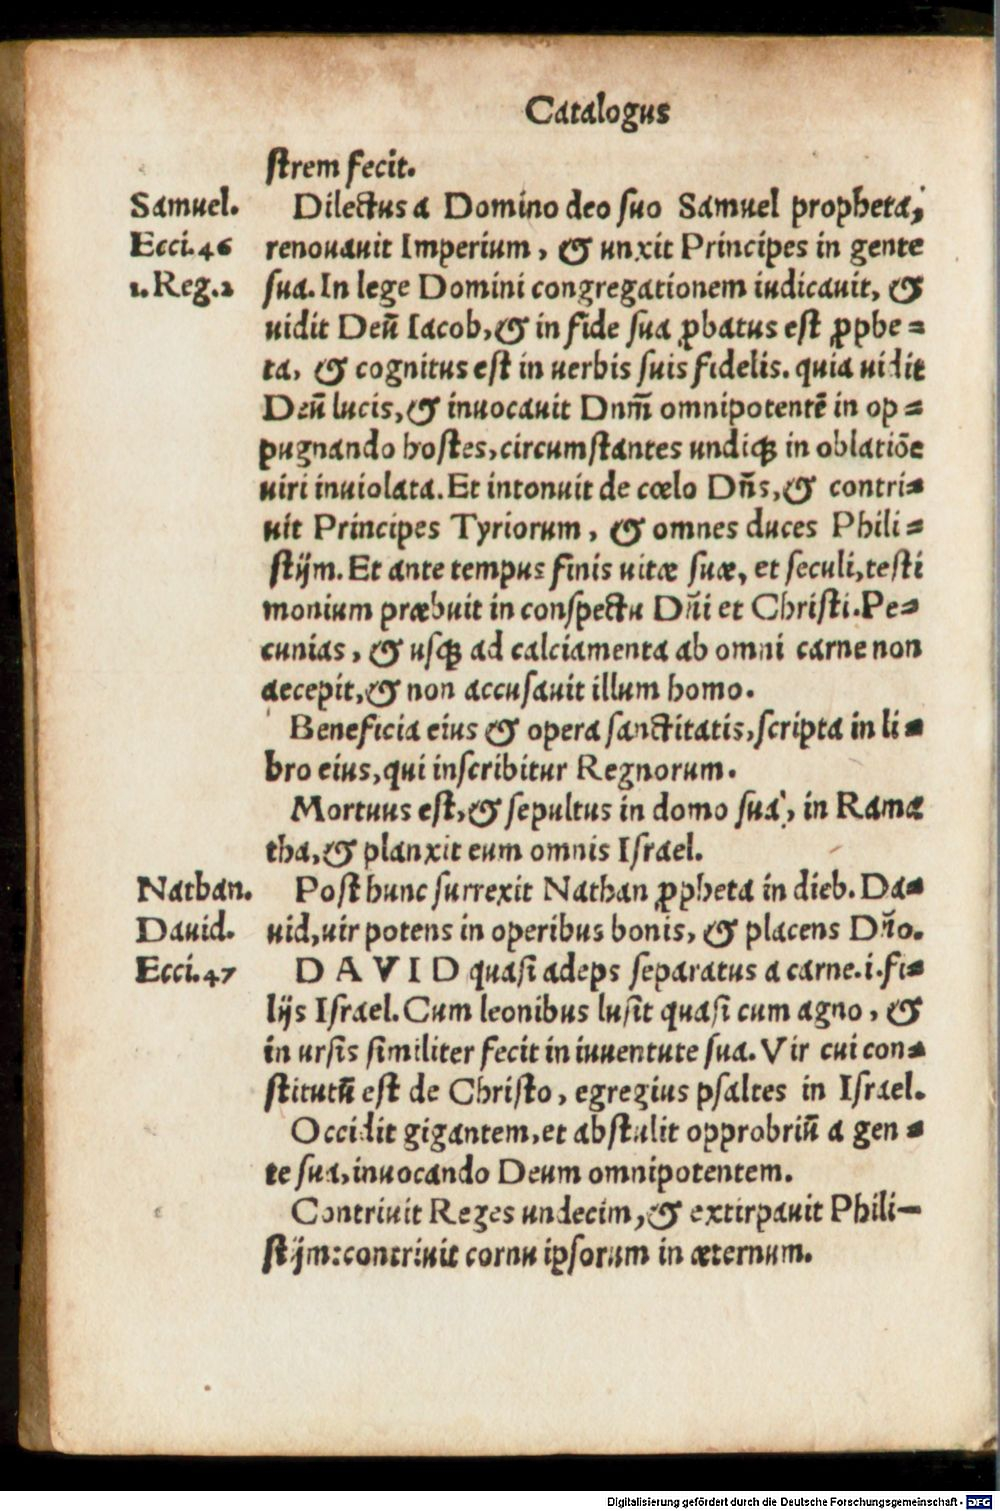 Catalogus
strem fecit.
Samuel. Dilectus a Domino deo suo Samuel propheta,
Ecci.46 renouauit Imperium, & unxit Principes in gente
1.Reg.2 sua. In lege Domini congregationem iudicauit, &
uidit Deū Iacob, & in fide sua ꝓbatus est ꝓphe=
ta, & cognitus est in uerbis suis fidelis. quia uidit
Deū lucis, & inuocauit Dnm̄ omnipotentē in op=
pugnando hostes, circumstantes undiqꝫ in oblatiōe
uiri inuiolata. Et intonuit de cœlo Dn̄s, & contri=
uit Principes Tyriorum, & omnes duces Phili=
stijm. Et ante tempus finis uitæ suæ, et seculi, testi
monium præbuit in conspectu Dn̄i et Christi. Pe=
cunias, & usqꝫ ad calciamenta ab omni carne non
accepit, & non accusauit illum homo.
Beneficia eius & opera sanctitatis, scripta in li=
bro eius, qui inscribitur Regnorum.
Mortuus est, & sepultus in domo sua, in Rama
tha, & planxit eum omnis Israel.
Nathan. Post hunc surrexit Nathan ꝓpheta in dieb. Da=
Dauid. uid, uir potens in operibus bonis, & placens Dn̄o.
Ecci.47 DAVID quasi adeps separatus a carne. i. fi=
lijs Israel. Cum leonibus lusit quasi cum agno, &
in ursis similiter fecit in iuuentute sua. Vir cui con=
stitutū est de Christo, egregius psaltes in Israel.
Occidit gigantem, et abstulit opprobriū a gen=
te sua, inuocando Deum omnipotentem.
Contriuit Reges undecim, & extirpauit Phili-
stijm: contriuit cornu ipsorum in æternum.
Digitalisierung gefördert durch die Deutsche Forschungsgemeinschaft - DFG